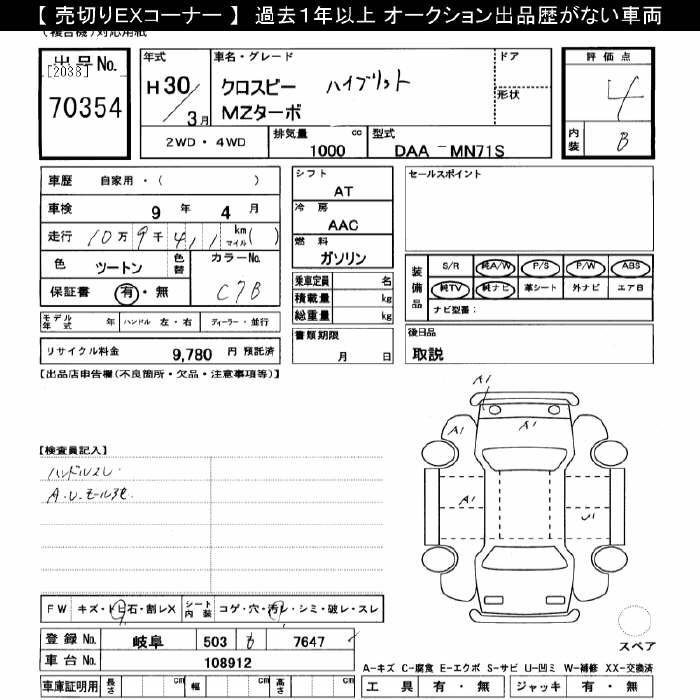 【 売切りEXコーナー 】 過去１年以上 オークション出品歴がない車両
(複合機)対応用紙
出品No.
[2038]
70354
年式
H 30
3月
車名・グレード
クロスビー ハイブリット
MZターボ
ドア
形状
評価点
4
内装
B
2WD・4WD
排気量 cc
1000
型式
DAA－MN71S
車歴 自家用・( )
車検 9 年 4 月
走行 10万9千4,1 km マイル( )
色 ツートン
色替
カラーNo.
C7B
保証書 有・無
モデル年式 年
ハンドル 左・右
ディーラー・並行
リサイクル料金 9,780 円 預託済
シフト
AT
冷房
AAC
燃料
ガソリン
乗車定員 名
積載量 kg
総重量 kg
書類期限
月 日
セールスポイント
装備品
S/R 純A/W P/S P/W ABS
純TV 純ナビ 革シート 外ナビ エアB
ナビ型番：
後日品
取説
【出品店申告欄(不良箇所・欠品・注意事項等)】
【検査員記入】
ハンドルスレ
A.U.モール
A1
A1
A1
A1
FW キズ・トビ石・割レX
シート内装 コゲ・穴・汚レ・シミ・破レ・スレ
登録No. 岐阜 503 も 7647
車台No. 108912
車庫証明用 長さ cm 幅 cm 高さ cm
スペア
A-キズ C-腐食 E-エクボ S-サビ U-凹ミ W-補修 XX-交換済
工具 有・無 ジャッキ 有・無